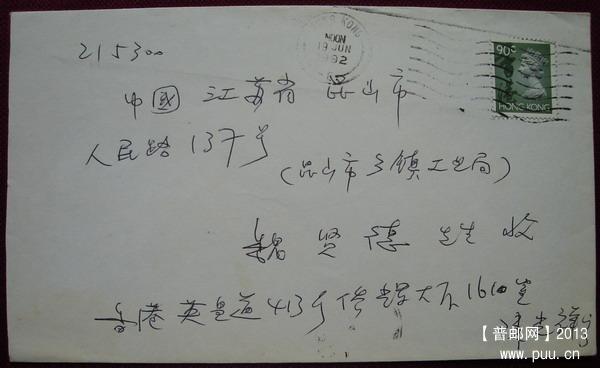 HONG KONG
NOON
19 JUN
1992
90¢
HONG KONG
215300
中國 江苏省 昆山市
人民路 137号
(昆山市乡镇工业局)
魏贤德 收
香港英皇道413号 大厦1610室
【普邮网】2013
www.puu.cn